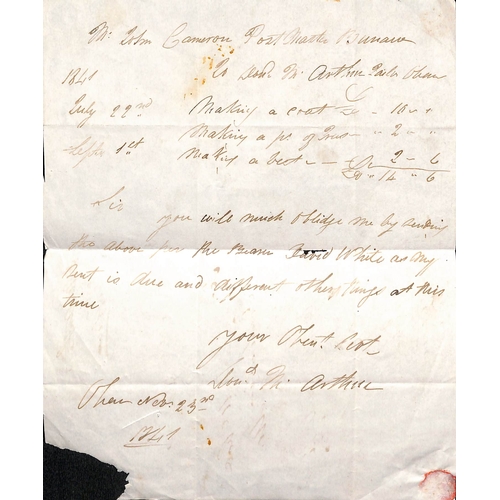 Mr John Cameron Post Master Bunaw
1841 To Dond Mc Arthur Tailor Oban
July 22nd Making a coat £ " 10 " "
Making a pr of Trous " 2 " "
Septr 1st Making a vest 2 " 6
£0 " 14 " 6
Sir
you will much Oblidge me by sending
the above per the Bearer David White as my
Rent is due and different other things at this
time
your Obent. Servt.
Dond Mc Arthur
Oban Novr. 23rd
1841